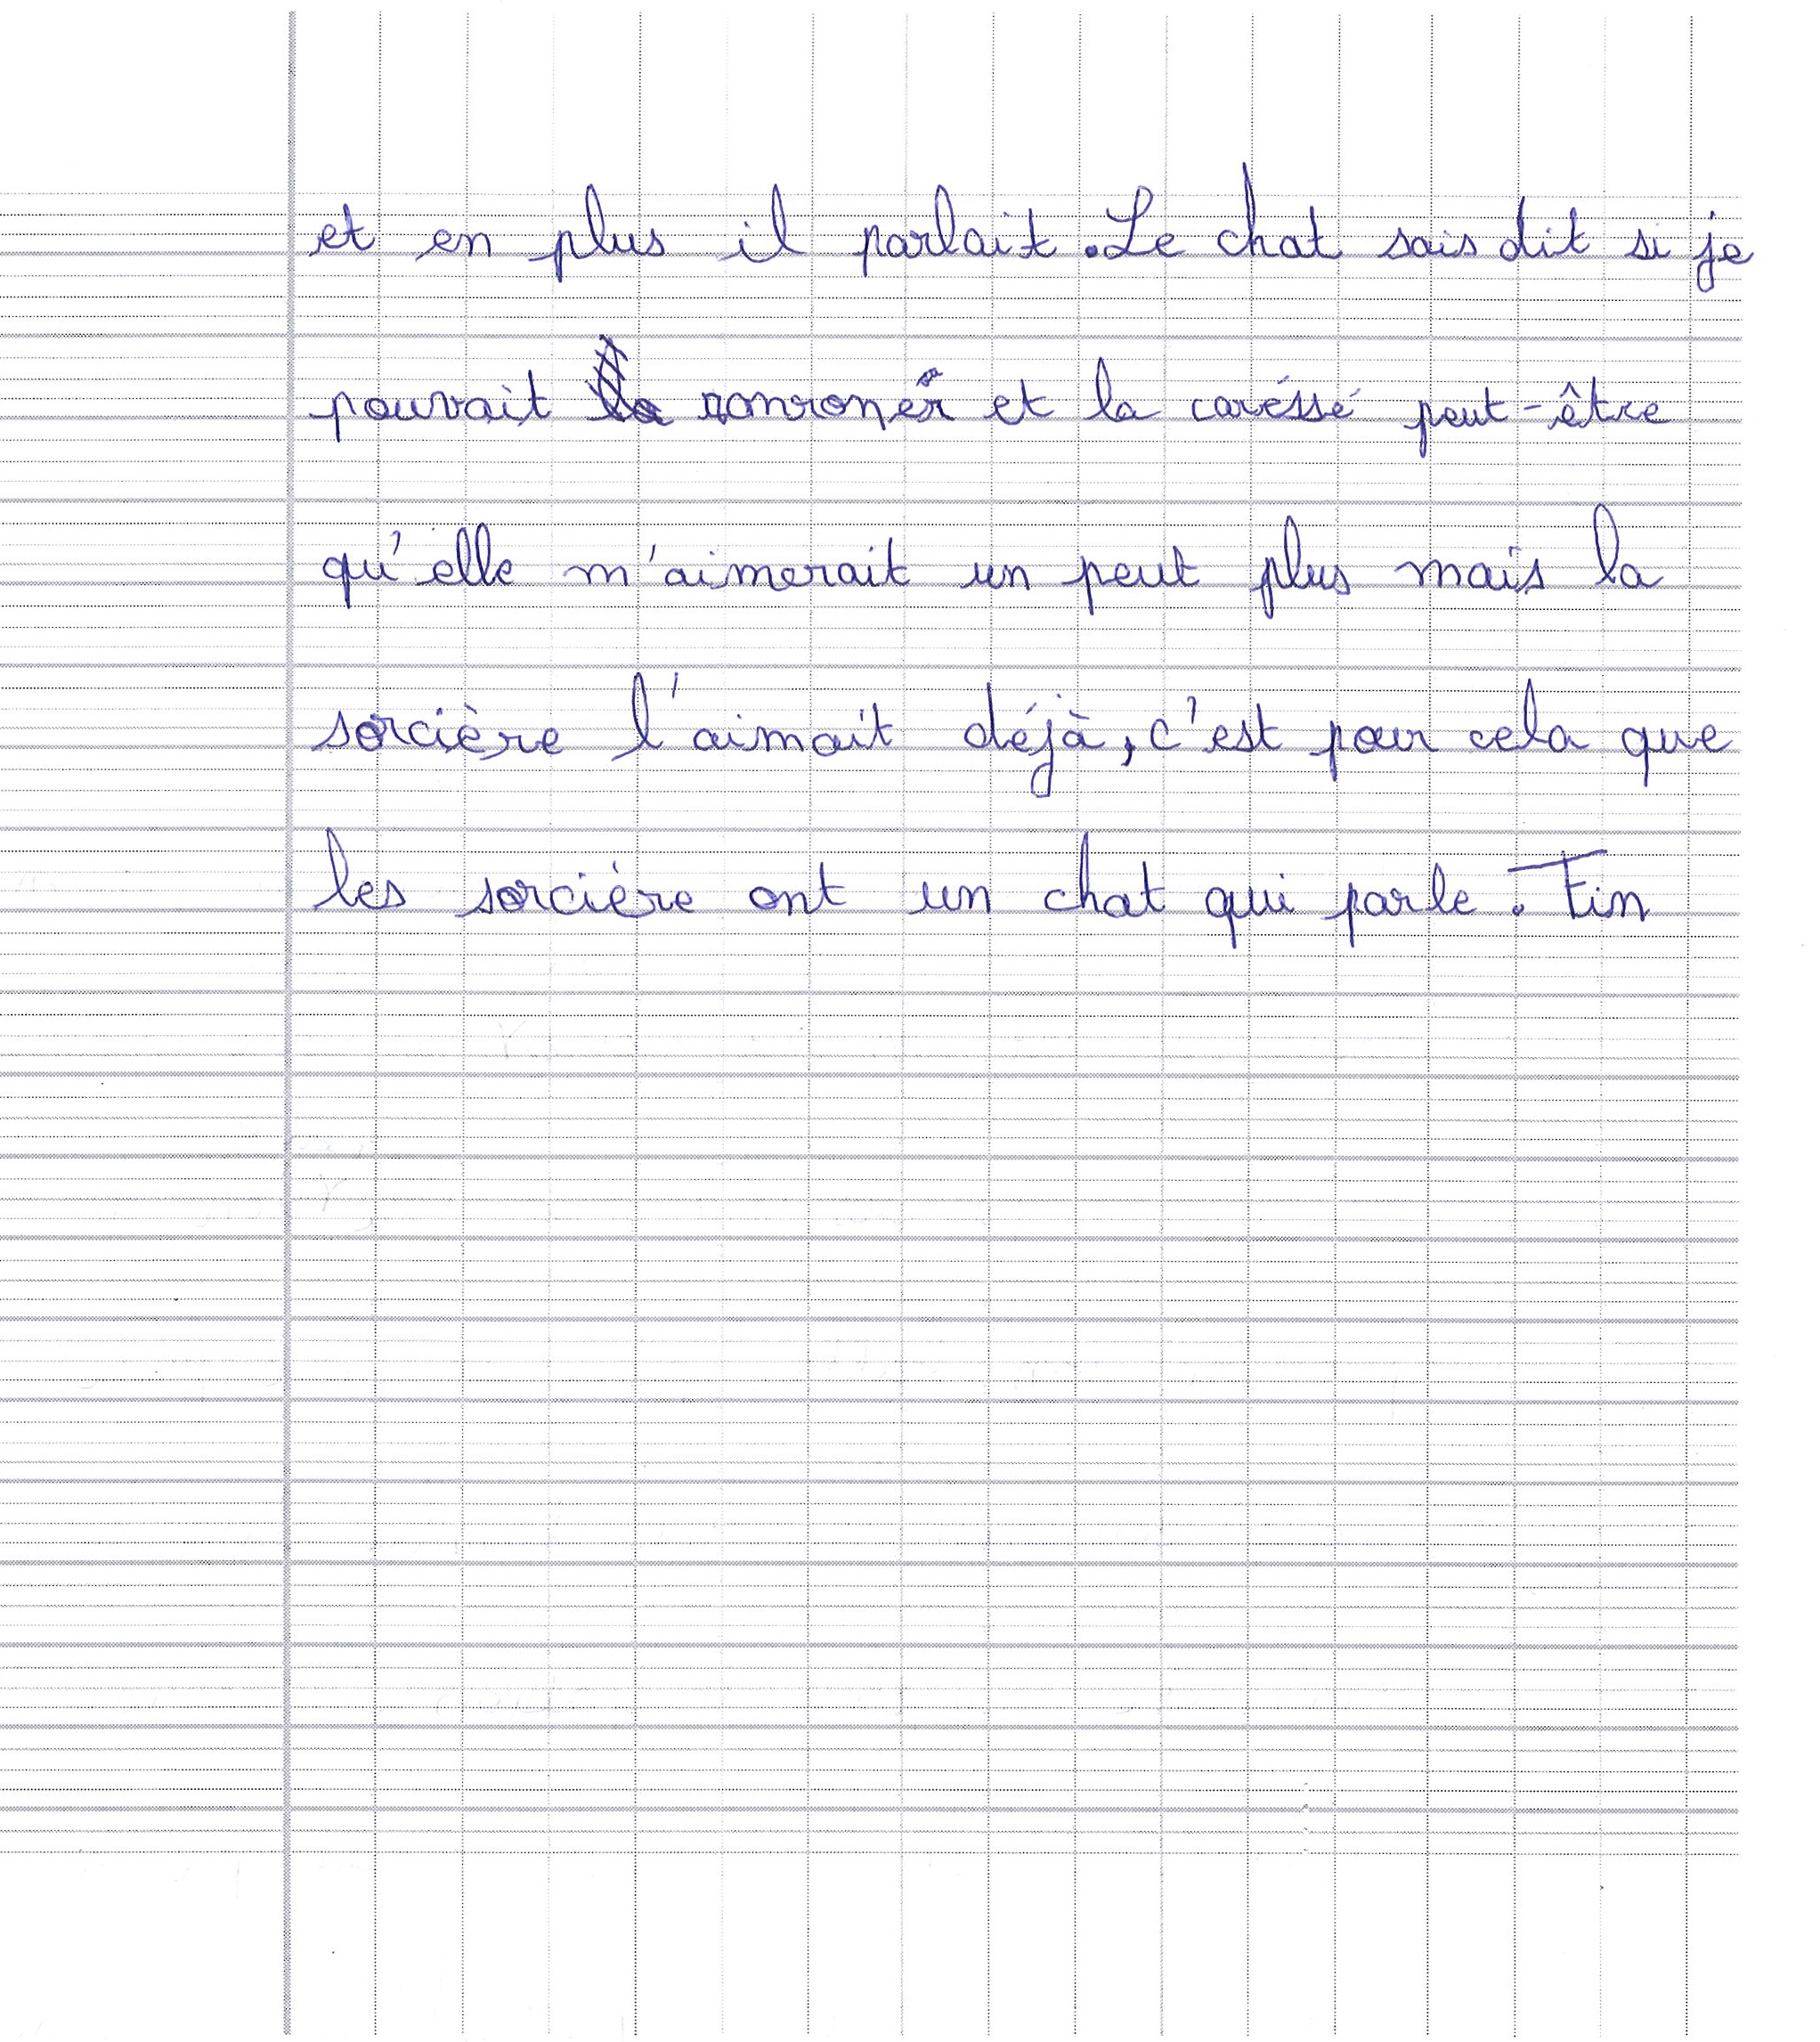 et en plus il parlait. Le chat sais dit si je
pouvait ronroner et la caréssé peut-être
qu'elle m'aimerait un peut plus mais la
sorcière l'aimait déjà, c'est pour cela que
les sorcière ont un chat qui parle. Fin